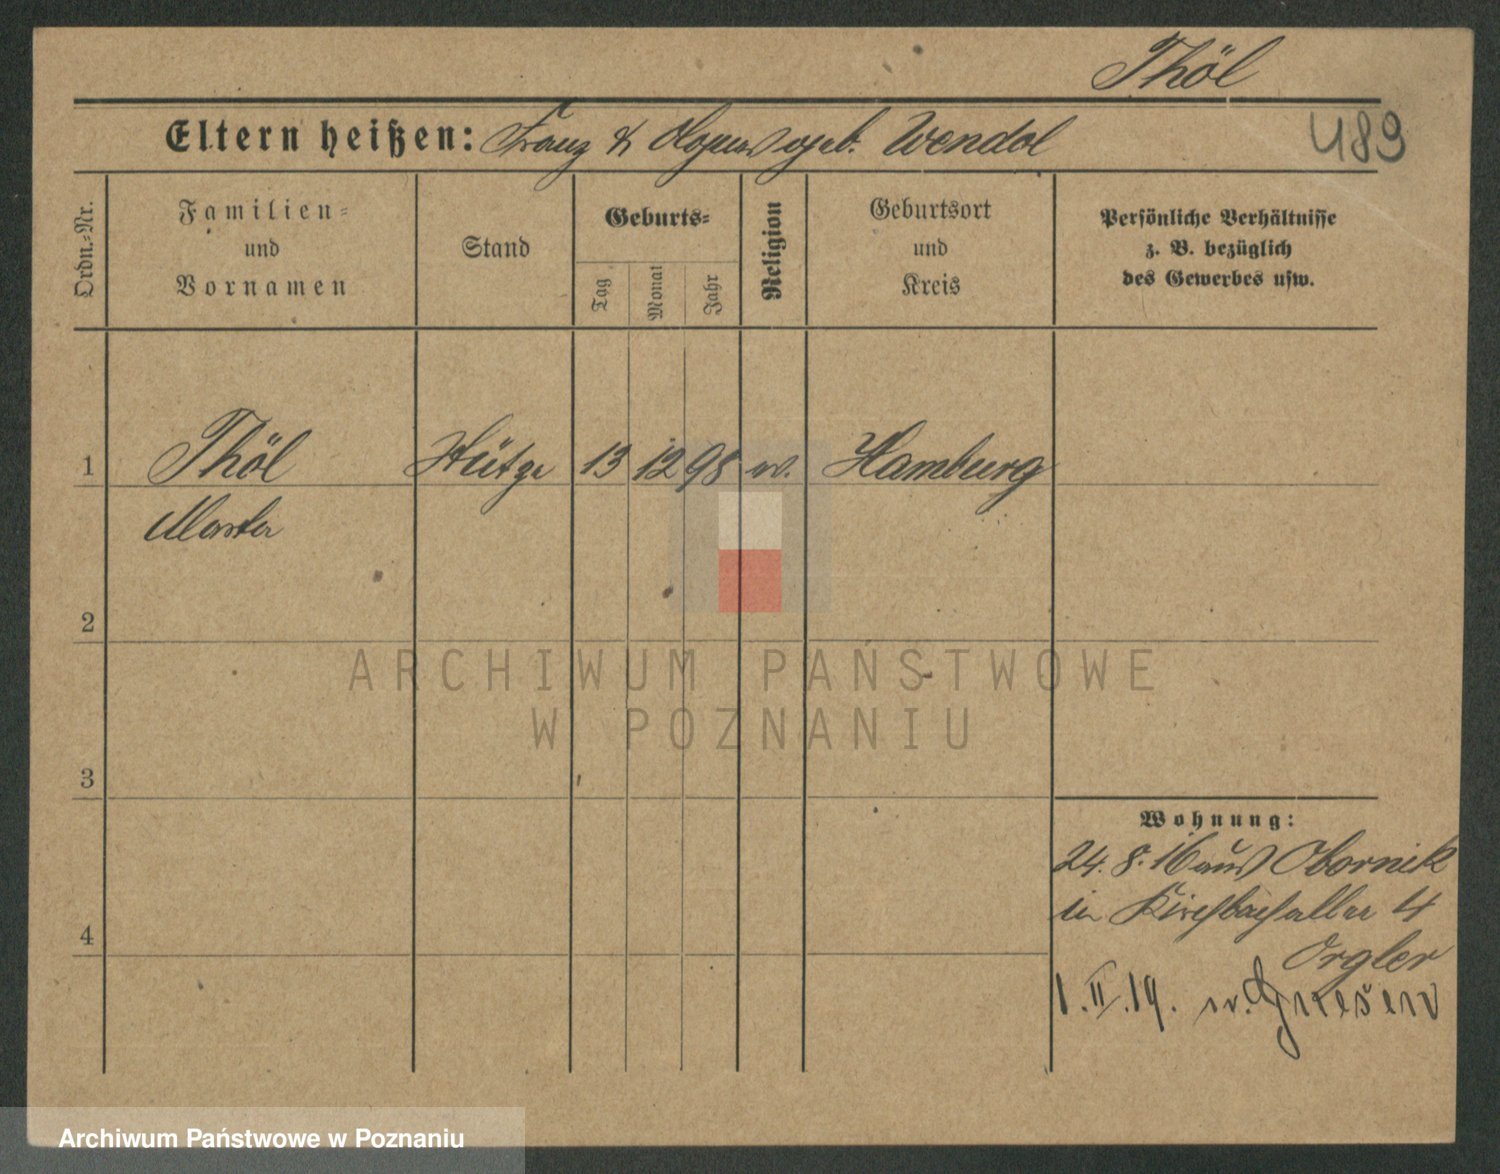 Thöl
Eltern heißen: Franz & Agnes geb. Wendol
489
Ordn.-Nr.
Familien-
und
Vornamen
Stand
Geburts-
Tag
Monat
Jahr
Religion
Geburtsort
und
Kreis
Persönliche Verhältnisse
z. B. bezüglich
des Gewerbes usw.
1 Thöl Stütze 13 12 98 ev. Hamburg
Marta
2
3
4
Wohnung:
24. 8. 16 aus Obornik
in Kirchbachallee 4
Orgler
1. II. 19. n. Gnesen
ARCHIWUM PAŃSTWOWE
W POZNANIU
Archiwum Państwowe w Poznaniu